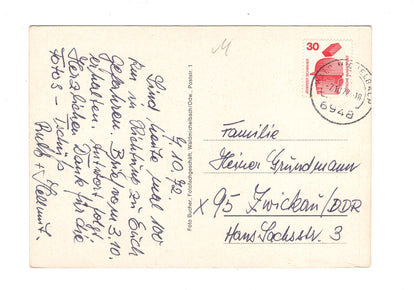 9.10.72.
Sind heute mal 100
km in Richtung zu Euch
gefahren. Brief vom 3.10.
erhalten. Antwort folgt.
Herzlichen Dank für die
Fotos - Tschüß
Ruth + Helmut.
Foto Bucher, Fotofachgeschäft, Waldmichelbach/Odw., Poststr. 1
30
6948
Familie
Heiner Grundmann
x 95 Zwickau/DDR
Hans Sachsstr. 3